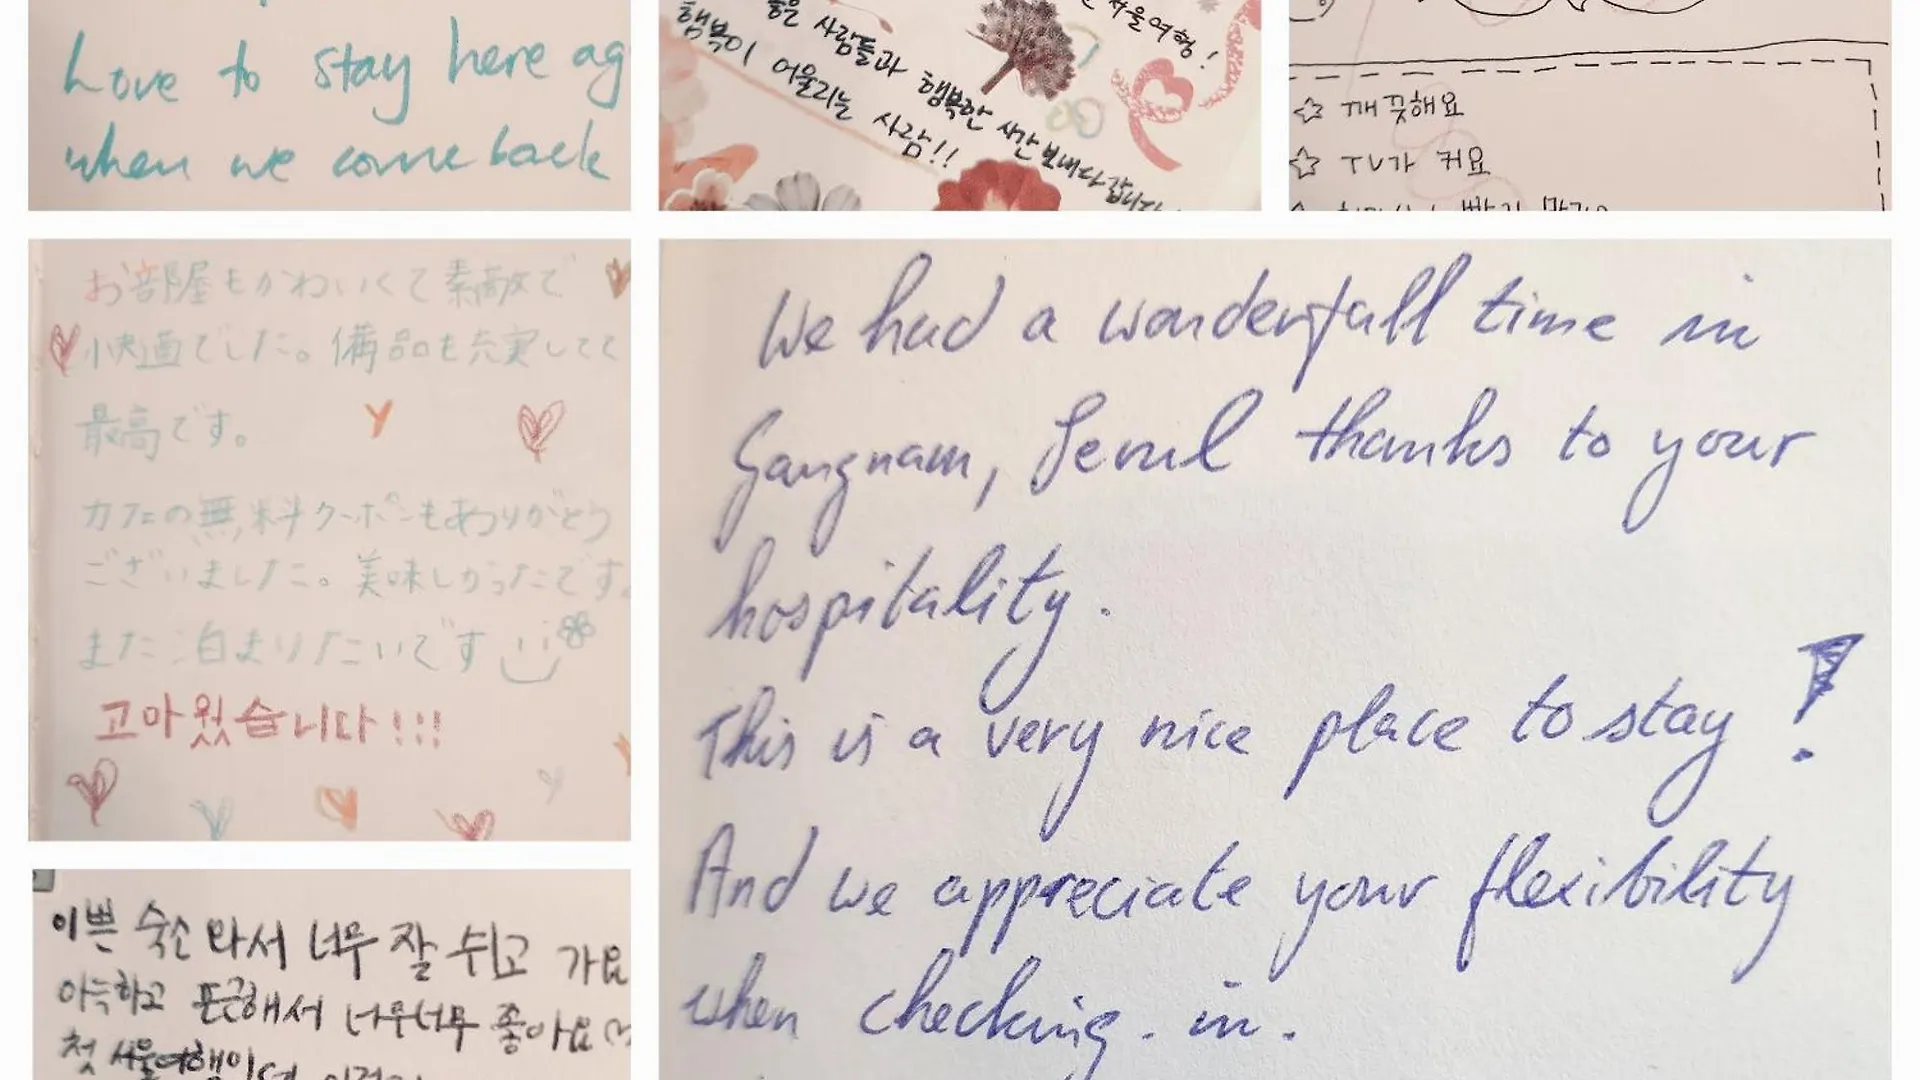 Love to stay here ag
when we come back
서울여행!
좋은 사람들과 행복한 시간 보내다 갑니다
행복이 어울리는 사람!!
깨끗해요
TV가 커요
お部屋もかわいくて素敵で
快適でした。備品も充実してて
最高です。
カフェの無料クーポンもありがとう
ございました。美味しかったです。
また泊まりたいです
고마웠습니다!!!
We had a wonderfull time in
Gangnam, Seoul thanks to your
hospitality.
This is a very nice place to stay!
And we appreciate your flexibility
when checking. in.
이쁜 숙소 와서 너무 잘 쉬고 가요
아늑하고 포근해서 너무너무 좋아요
첫 서울여행이